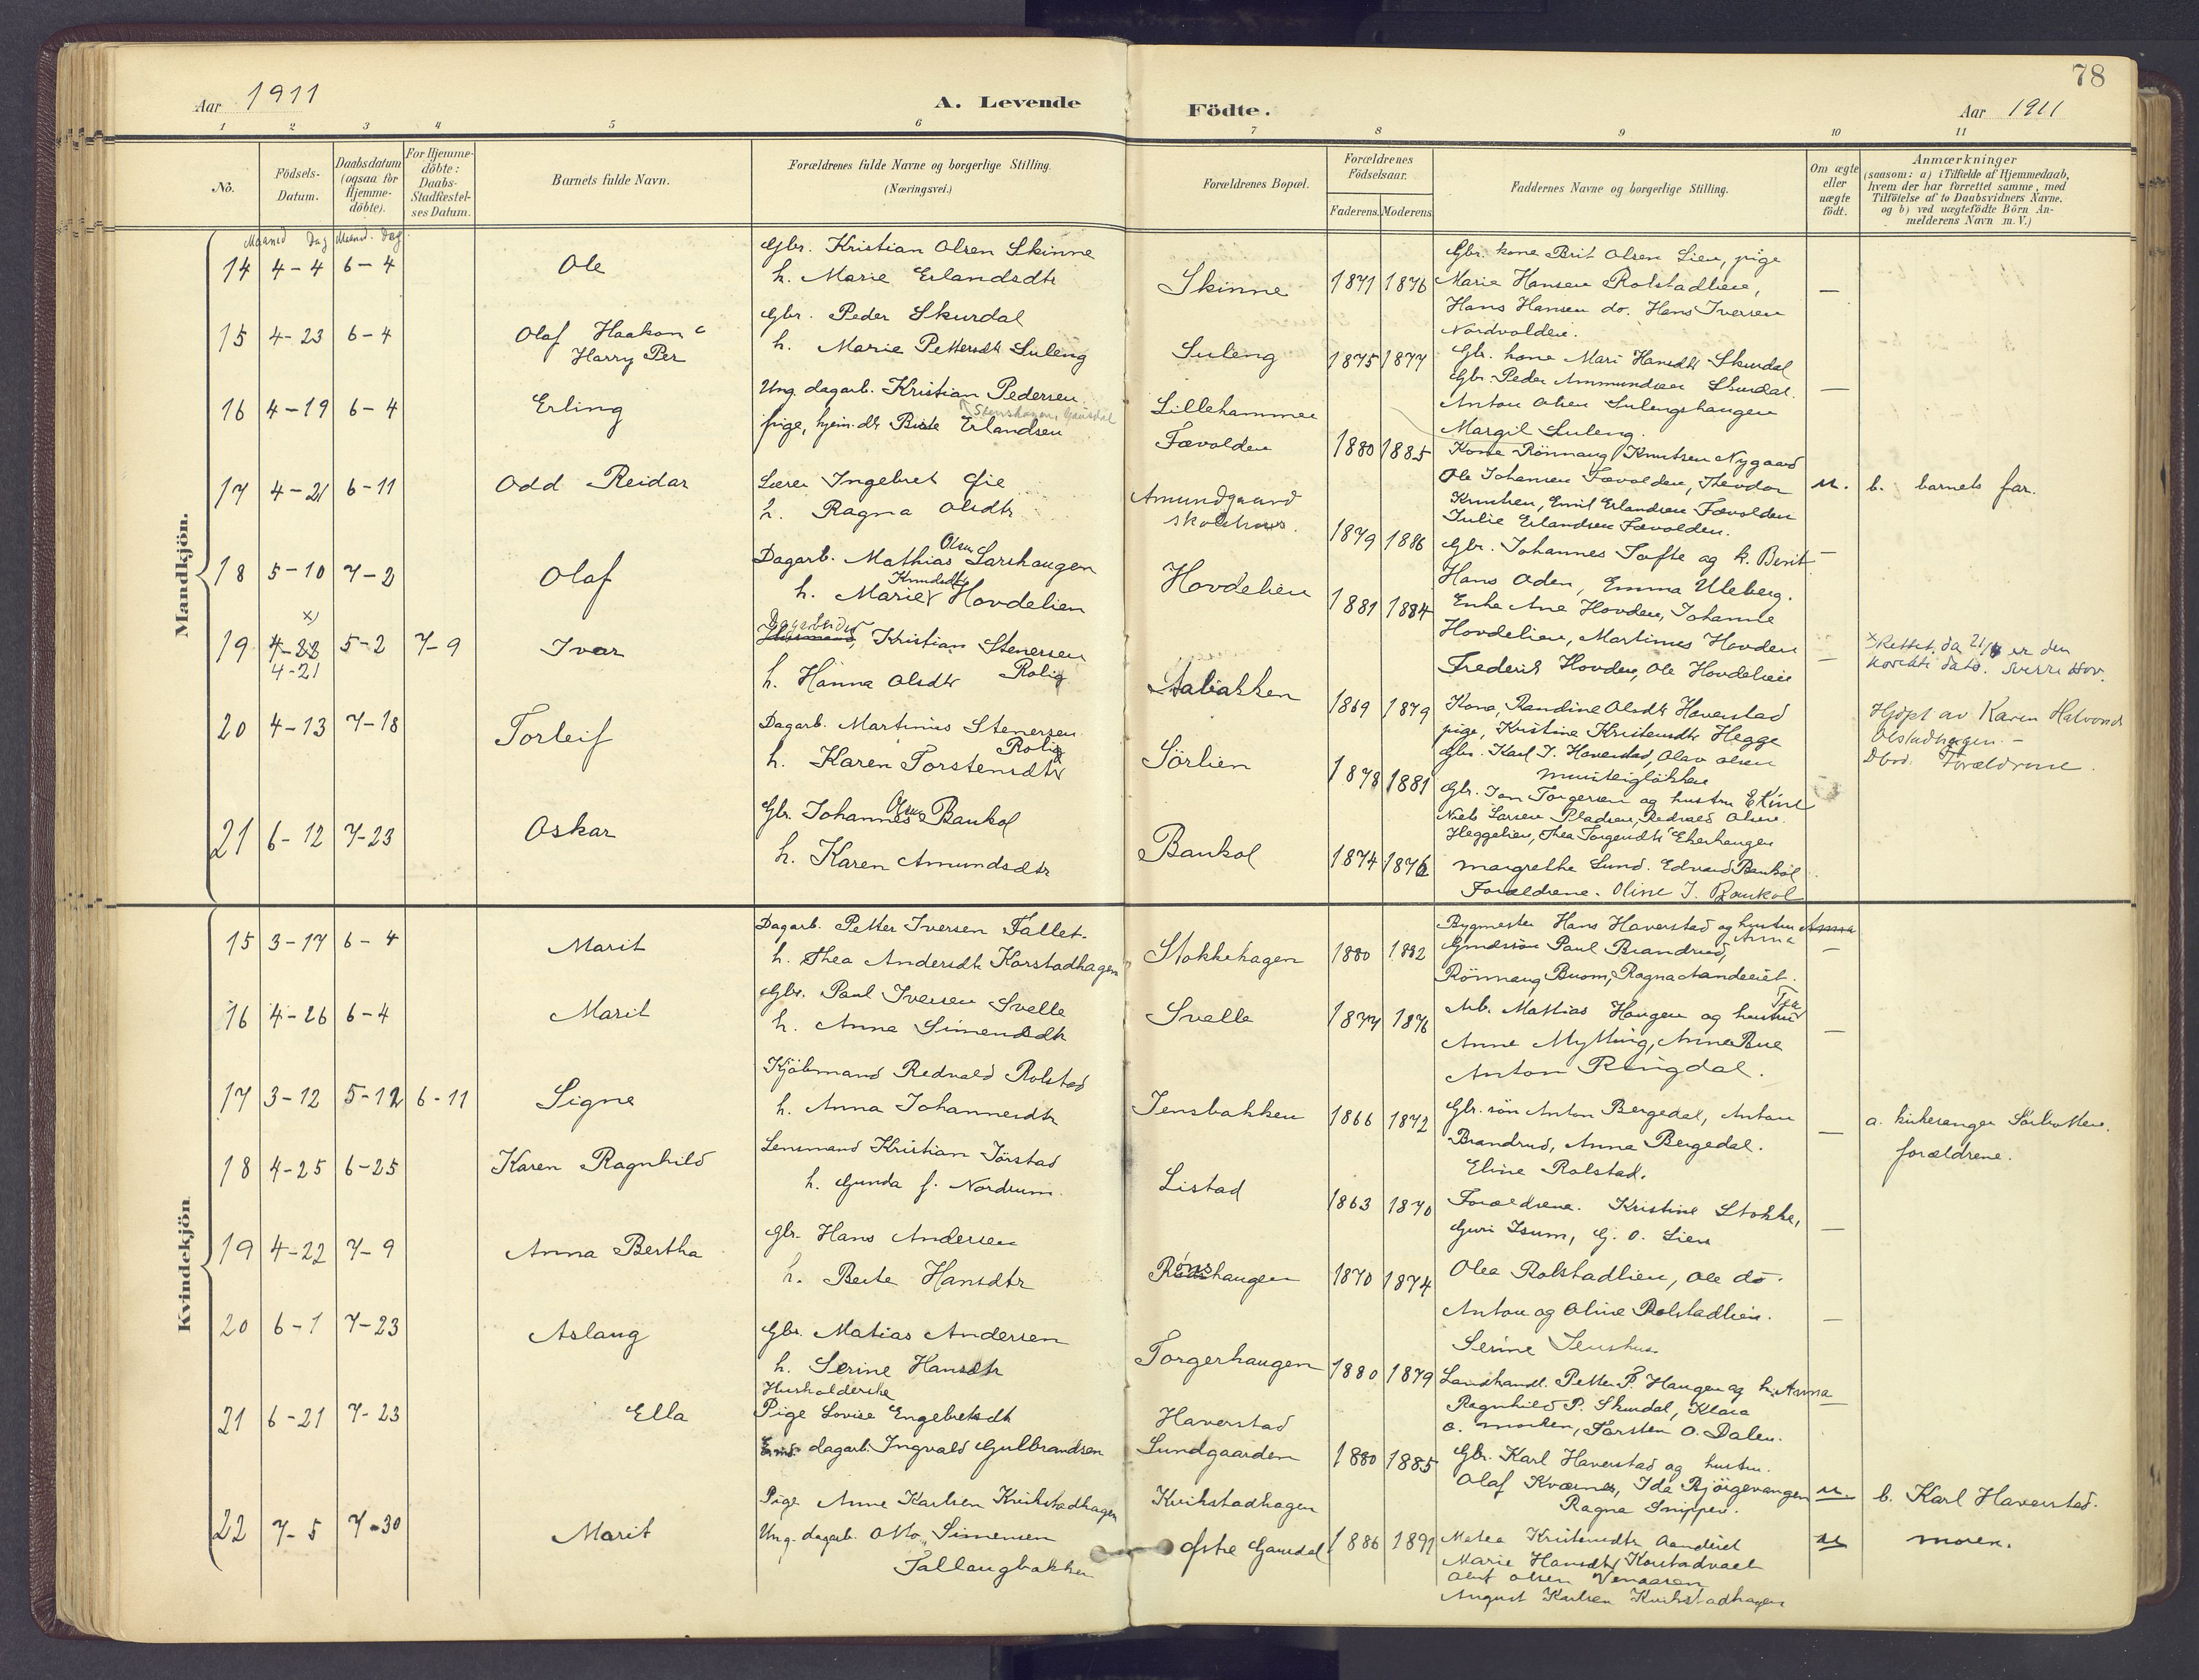 78
Aar 1911
A. Levende Födte.
Aar 1911
1 2 3 4 5 6 7 8 9 10 11
No.
Födsels-Datum.
Daabsdatum (ogsaa for Hjemme-döbte).
For Hjemme-döbte: Daabs-Stadfæstel-ses Datum.
Barnets fulde Navn.
Forældrenes fulde Navne og borgerlige Stilling.
(Næringsvei.)
Forældrenes Bopæl.
Forældrenes Födselsaar.
Faderens. Moderens
Faddernes Navne og borgerlige Stilling.
Om ægte eller uægte födt.
Anmærkninger
(saasom: a) i Tilfælde af Hjemmedaab,
hvem der har forrettet samme, med
Tilföielse af to Daabsvidners Navne,
og b) ved uægtefödte Börn An-
melderens Navn m. V.)
Maaned Dag Maaned. Dag
Mandkjön.
14 4-4 6-4 Ole
Gbr. Kristian Olsen Skinne
h. Marie Erlandsdtr
Skinne 1871 1876
Gbr. kone Brit Olsen Lien, pige
Marie Hansen Rolstadlien,
Hans Hansen do. Hans Iversen
Nordvolden.
—
15 4-23 6-4 Olaf Haakon
Harry Per
Gbr. Peder Skurdal
h. Marie Pettersdtr Suleng
Suleng 1875 1877
Gbr. kone Mari Hansdtr Skurdal
Gbr. Peder Ammundsen Skurdal.
Anton Olsen Sulengshaugen
Margit Suleng.
—
16 4-19 6-4 Erling
Ung. dagarb. Kristian Pedersen
pige, hjem. dtr Erlandsen
Lillehammer
Fævolden 1880 1885
Kone Rönnaug Knutsen Nygaard
Ole Johansen Fævolden, Thevdor
Knutsen, Emil Erlandsen Fævolden
Julie Erlandsen Fævolden.
u. b. barnets far.
17 4-21 6-11 Odd Reidar
Lærer Ingebret Øie
h. Ragna Olsdtr
Amundgaard
skolehus. 1879 1886
Gbr. Johannes Tofte og k. Berit
Hans Oden, Emma Uleberg.
—
18 5-10 7-2 Olaf
Dagarb. Mathias Olsen Larshaugen
h. Marie Knudsdtr Hovdelien
Hovdelien 1881 1884
Enke Ane Hovden, Johanne
Hovdelien, Martinus Hovden
Frederik Hovden, Ole Hovdelien
—
x)
19 4-22 5-2 7-9 Ivar
4-21
Dagarbeider
Husmand, Kristian Stenersen
h. Hanna Olsdtr Rolig
1869 1879
Kone, Randine Olsdtr Haverstad
pige, Kristine Kristensdtr Hegge
Gbr. Karl J. Haverstad, Olav Olsen
x Rettet, da 21/4 er den
korekte dato. Sverre Hov.
20 4-13 7-18 Torleif
Dagarb. Martinus Stenersen
h. Karen Torstensdtr Rolig
Sörlien 1878 1881
Gbr. Jon Torgersen og hustru Eline
Niels Larsen Pladsen, Redvald Olsen
Heggelien, Thea Torgersdtr
Hjdpt av Karen Halvorsd.
Olstadhagen. —
Dbvd. Forældrene.
21 6-12 7-23 Oskar
Gbr. Johannes Olsen Baukol
h. Karen Amundsdtr
Baukol 1874 1876
Margrethe Lund. Edvard Baukol
Forældrene. Oline J. Baukol
Kvindekjön
15 3-17 6-4 Marit
Dagarb. Petter Iversen Fallet.
h. Thea Andersdtr Korstadhagen
Stokkehagen 1880 1882
Bygmester Hans Haverstad og hustru Anna
Anna
Gmdssön Paul Brandrud,
Rönnaug Buom, Ragna Aanderud.
—
16 4-26 6-4 Marit
Gbr. Paul Iversen Svelle
h. Anne Simensdtr
Svelle 1877 1876
Arb. Mathias Haugen og hustru Thea
Anne Mytting, Anne Bue
Anton Ringdal.
—
17 3-12 5-12 6-11 Signe
Kjöbmand Redvald Rolstad
h. Anna Johannesdtr
Jensbakken 1866 1872
Gbr. sön Anton Bergedal, Anton
Brandrud, Anna Bergedal.
Eline Rolstad.
— a. kirkesanger Sörbotten.
forældrene.
18 4-25 6-25 Karen Ragnhild
Lensmand Kristian Jörstad
h. Gunda f. Nordrum.
Listad 1863 1870
Forældrene. Kristine Stokke,
Guri Isum, G. O. Lien
—
19 4-22 7-9 Anna Bertha
Gbr. Hans Andersen
h. Berte Hansdtr
Rönshaugen 1870 1874
Olea Rolstadlien, Ole do.
Anton og Oline Rolstadlien.
Serine Jenshus
—
20 6-1 7-23 Aslaug
Gbr. Matias Andersen
h. Serine Hansdtr
Torgerhaugen 1880 1879
Landhandl. Petter P. Haugen og h. Anna
Ragnhild P. Skurdal, Klara
O. Moshen, Torsten O. Dalen.
—
21 6-21 7-23 Ella
Husholderske
Pige Lovise Engebretsdtr
dagarb. Ingvald Gulbrandsen
Haverstad
Lundgaarden 1880 1885
Gbr. Karl Haverstad og hustru.
Olaf Kværnes, Ida Bjöigevangen
Ragna Snippen.
u. b. Karl Haverstad.
22 7-5 7-30 Marit
Pige Anne Karlsen Kvikstadhagen
Ung. dagarb. Otto Simensen
Fallaugbakken
Kvikstadhagen
Østre Gausdal 1886 1891
Matea Kristensdtr Aanderud
Marie Hansdtr Korstadvael
Oluf Olsen Venaasen
August Karlsen Kvikstadhagen
u moren.